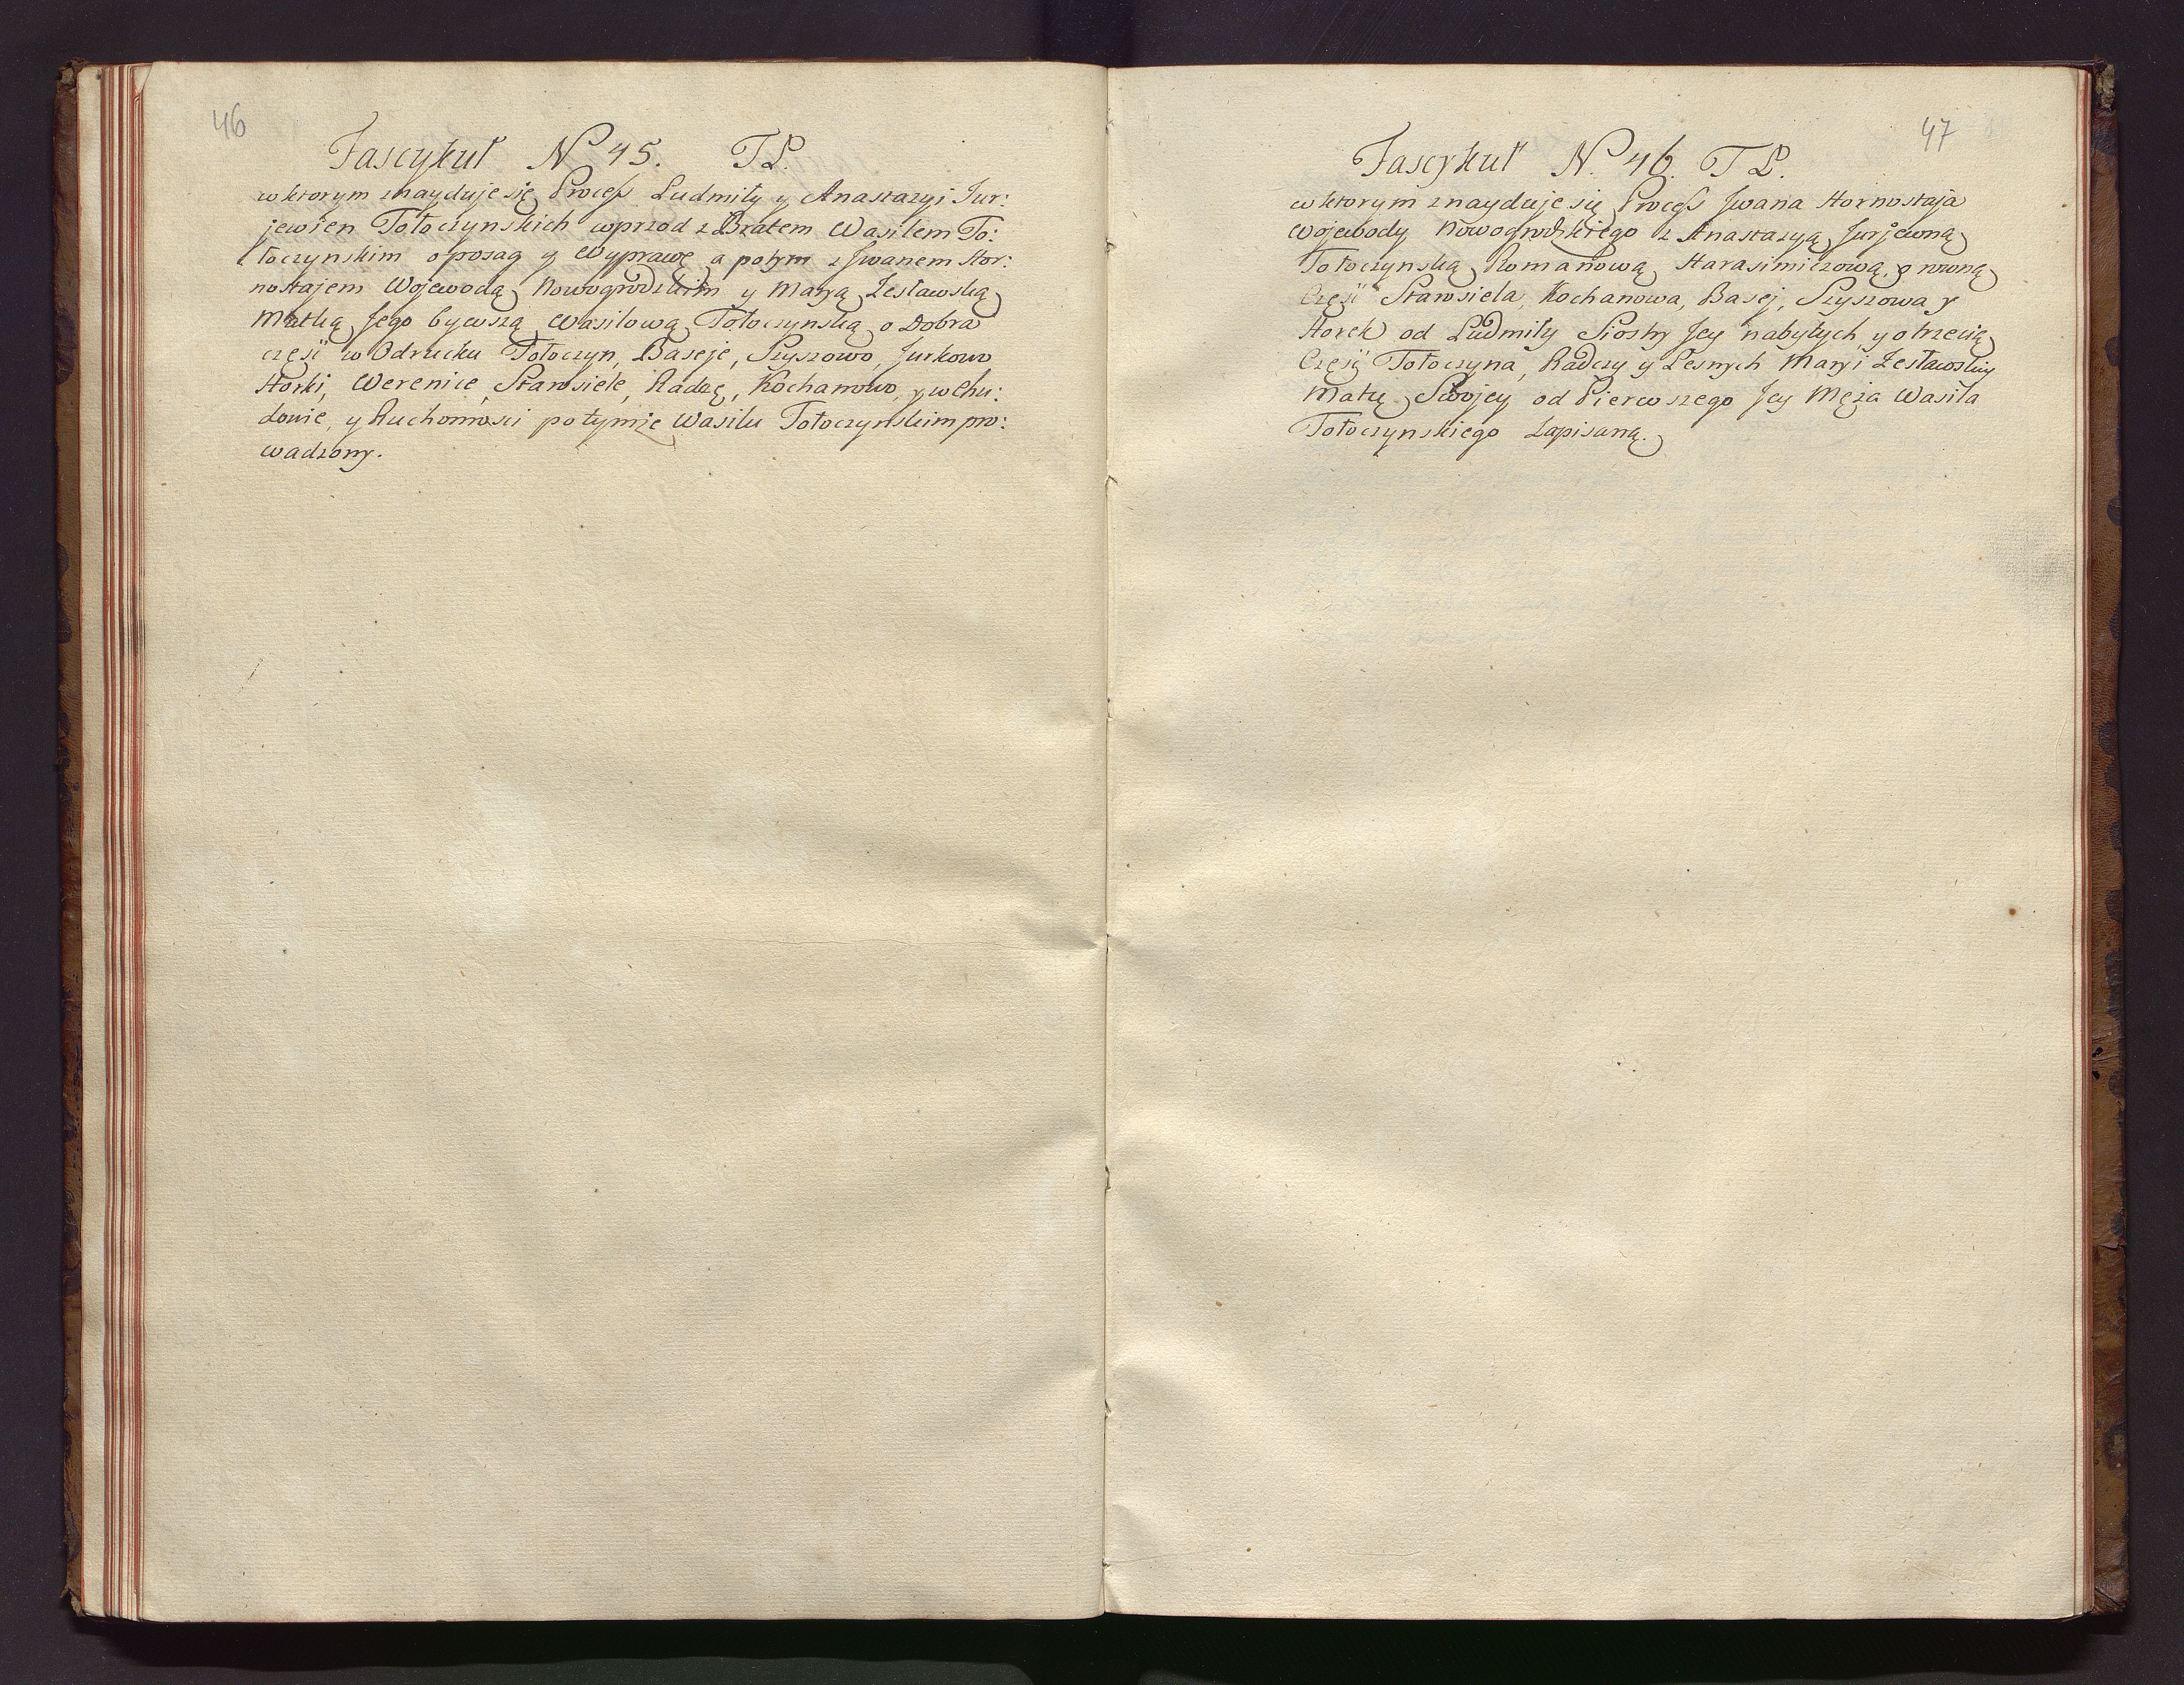 46
Fascykuł N 45. TL.
w ktorym znayduje się Process Ludmiły y Anastazyi Jur:
jewien Tołoczynskich wprzod z Bratem Wasilem To:
łoczynskim o posag y Wyprawę a potym z Jwanem Hor:
nostajem Wojewodą Nowogrodzkim y Maryą Zesławską
Matką Jego bywszą Wasilową Tołoczynską o Dobra
część w Odrucku Tołoczyn, Baseje, Szyszowo, Jurkowo
Horki, Werenice, Starosiele, Radczę, Kochanowo, y w Chu:
dowie, y Ruchomosci po tymże Wasilu Tołoczynskim pro:
wadzony.
47
Fascykuł N. 46. TL.
w ktorym znayduje się Process Jwana Hornostaja
Wojewody Nowogrodzkiego z Anastazyą Jurjewną
Tołoczynską Romanową Harasimiczową, o rowną
Część Starosiela, Kochanowa, Basej, Szyszowa y
Horek od Ludmiły Siostry Jey nabytych, y o trzecią
Część Tołoczyna, Radczy y Lesnych Maryi Zesławskiy
Matcę Swojey od Pierwszego Jey Męża Wasila
Tołoczynskiego Zapisaną.